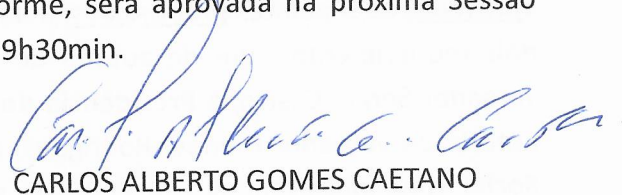 orme, será aprovada na próxima Sessão
9h30min.
CARLOS ALBERTO GOMES CAETANO